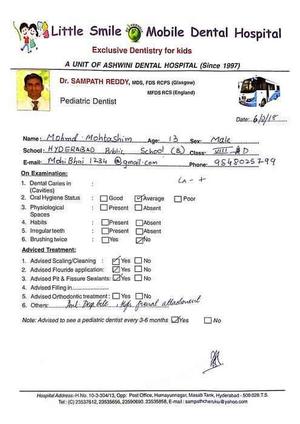 Little Smile Mobile Dental Hospital
Exclusive Dentistry for kids
A UNIT OF ASHWINI DENTAL HOSPITAL (Since 1997)
Dr. SAMPATH REDDY, MDS, FDS RCPS (Glasgow)
MFDS RCS (England)
Pediatric Dentist
Date: 6/2/15
Name: Mohmd. Mohtashim Age: 13 Sex: Male
School: HYDERABAD Public School (B) Class: VIII D
E-mail: MohiBhai 1234 @gmail.com Phone: 9848025799
On Examination:
1. Dental Caries in (Cavities)
2. Oral Hygiene Status : Good Average Poor
3. Physiological Spaces : Present Absent
4. Habits : Present Absent
5. Irregular teeth : Present Absent
6. Brushing twice : Yes No
Adviced Treatment:
1. Advised Scaling/Cleaning : Yes No
2. Advised Flouride application: Yes No
3. Advised Pit & Fissure Sealants: Yes No
4. Advised Filling in
5. Advised Orthodontic treatment : Yes No
6. Others: deep bite, High frenal attachment
Note: Advised to see a pediatric dentist every 3-6 months Yes No
Hospital Address-H No. 10-3-304/13, Opp: Post Office, Humayunnagar, Masab Tank, Hyderabad - 500 028 T.S.
Tel: (C) 23537612, 23535656, 23590693, 23535858, E-mail : sampathcheruku@yahoo.com